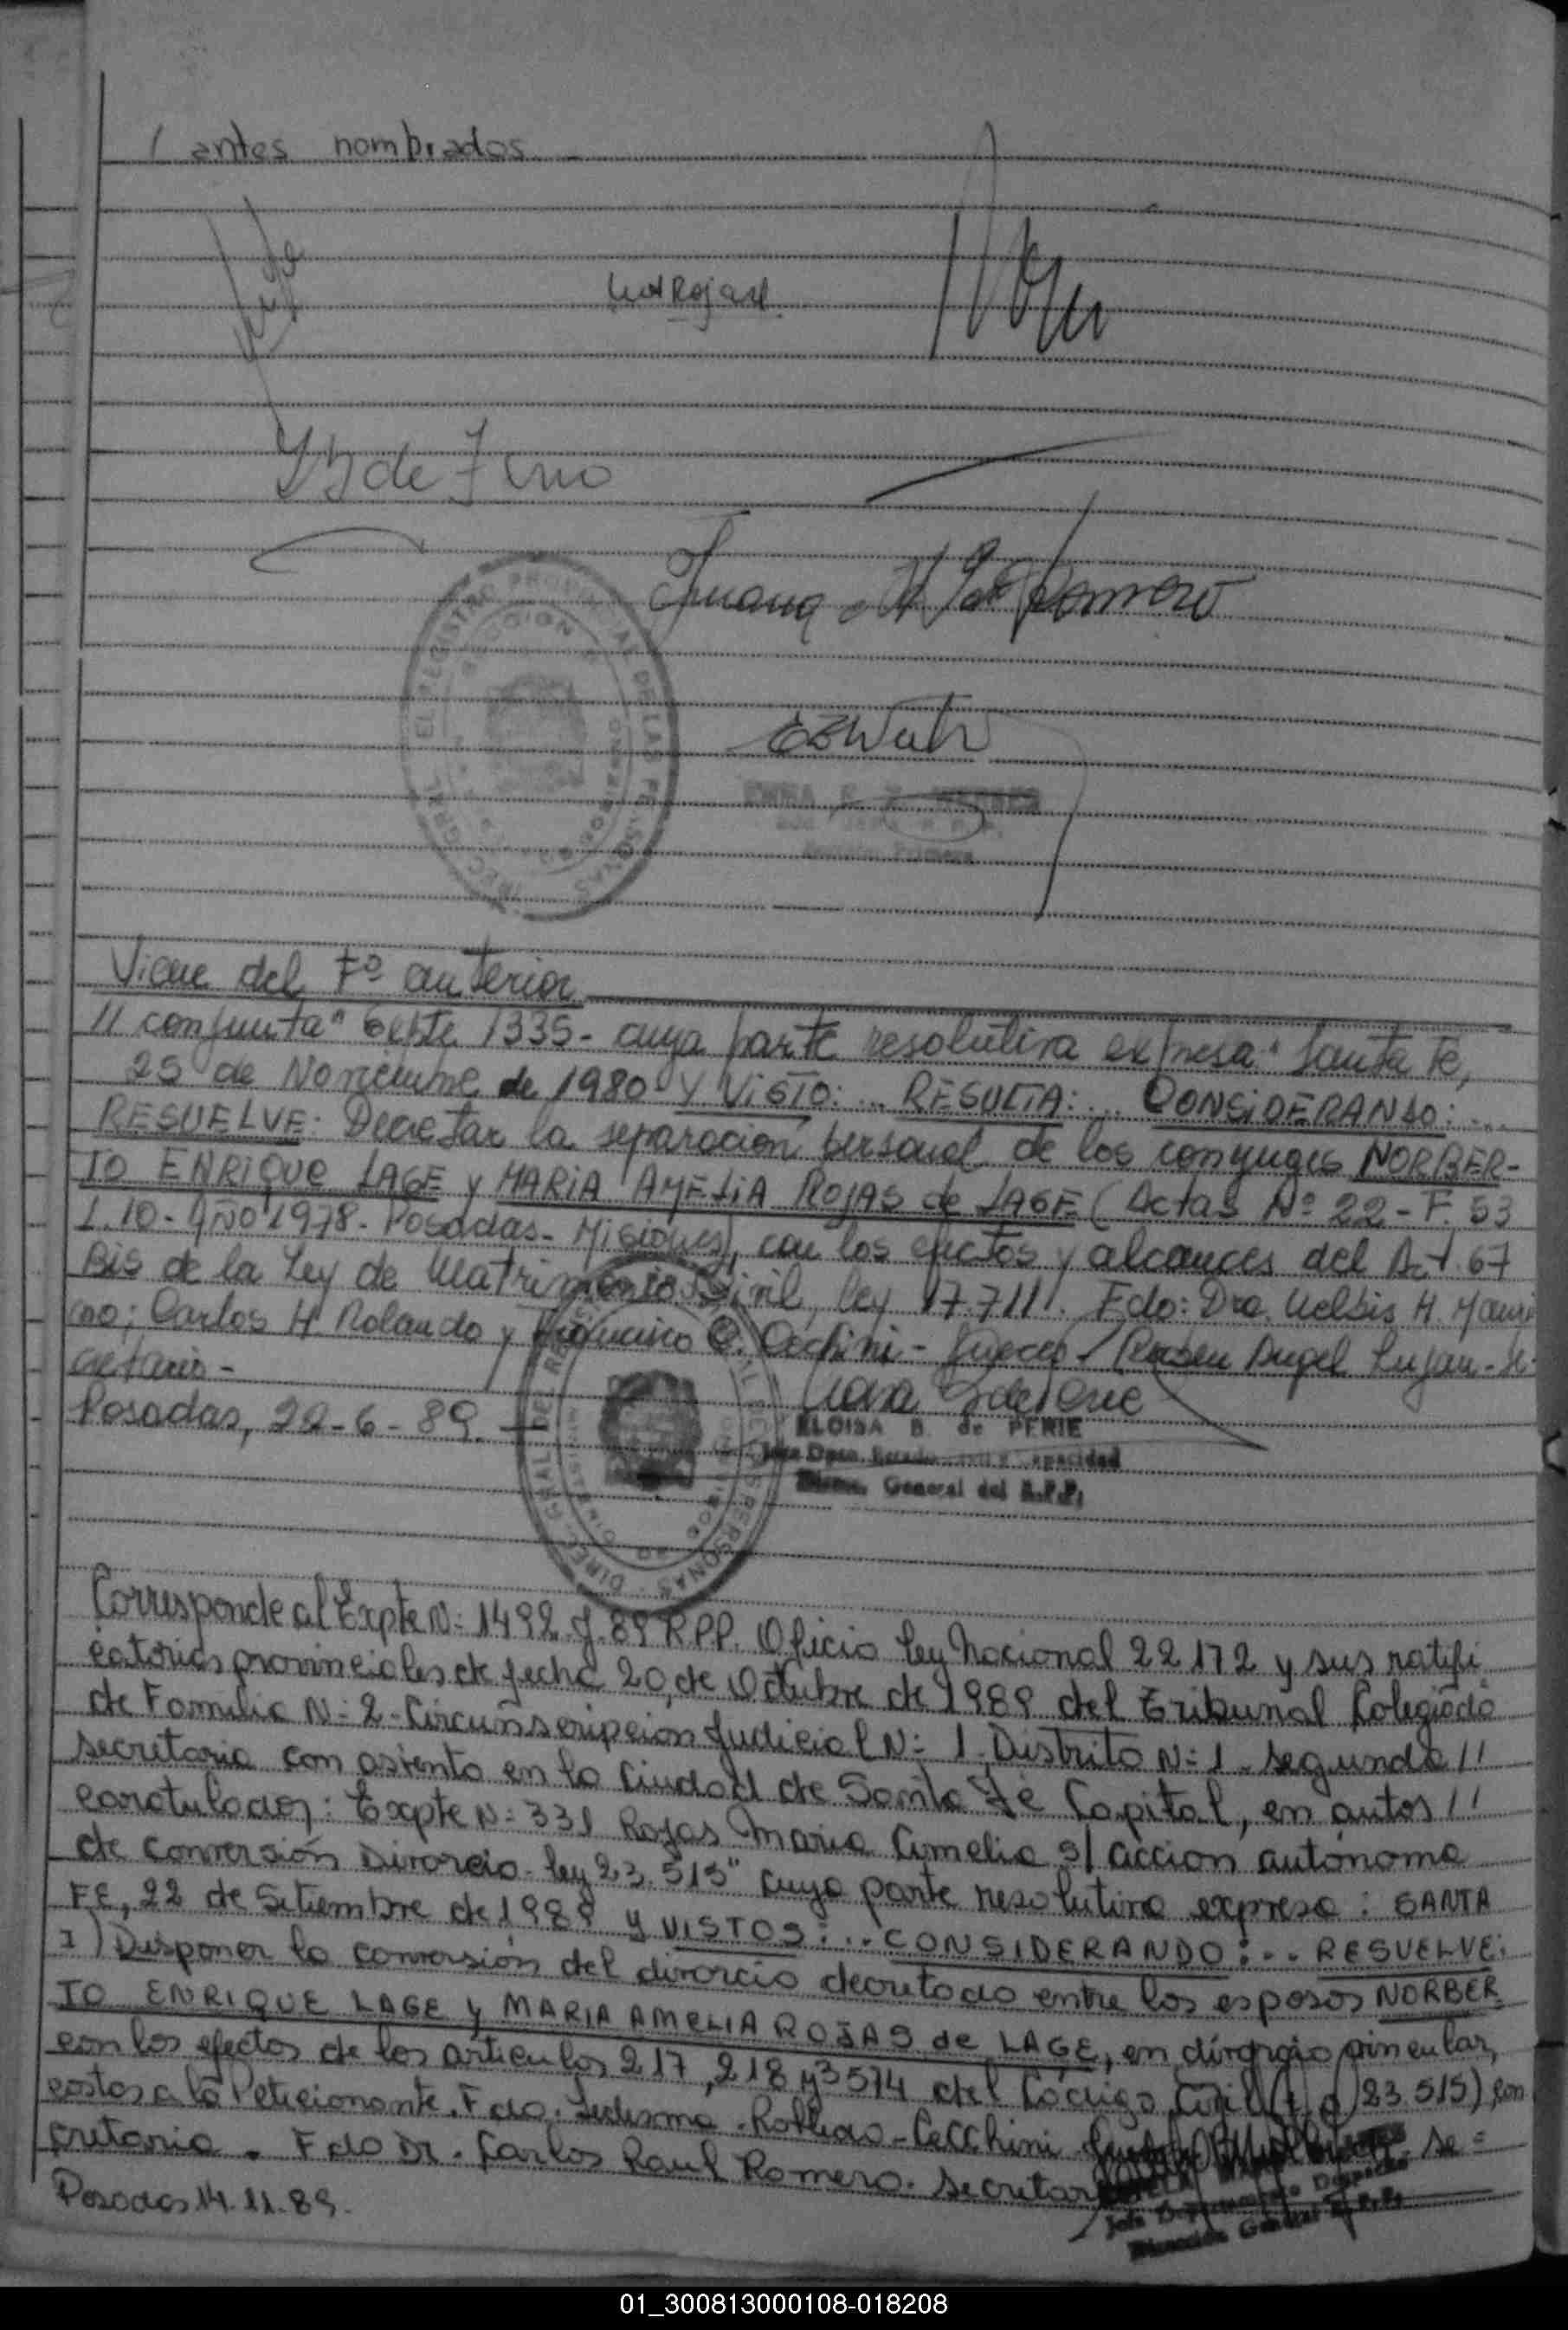 / antes nombrados
Viene del Fº anterior
// conjunta" Expte 1335- cuya parte resolutiva expresa: Santa Fe,
25 de Noviembre de 1980 Y VISTO: ... RESULTA: ... CONSIDERANDO: ...
RESUELVE: Decretar la separacion personal de los conyuges NORBER-
TO ENRIQUE LAGE y MARIA AMELIA ROJAS de LAGE (Actas Nº 22 - F. 53
T. 10 - Año 1978 - Posadas - Misiones), con los efectos y alcances del Art. 67
Bis de la Ley de Matrimonio Civil, ley 17.711. Fdo: Dra. H.
no; Carlos H. Rolando y Francisco C. Cecchini - Jueces - Ruben Angel Lujan - Se-
cretario -
Posadas, 22-6-89.
ELOISA B. de PERIE
Capacidad
General del R.P.P.
Corresponde al Expte N: 1492 89 R.P.P. Oficio Ley Nacional 22172 y sus ratifi
catorias provinciales de fecha 20, de Octubre de 1989 del Tribunal Colegiado
de Familia N: 2 - Circunscripción Judicial N: 1 - Distrito N: 1 - segunda //
secretaria con asiento en la Ciudad de Santa Fé Capital, en autos //
caratulados: Expte N: 331 Rojas Maria Amelia s/ accion autónoma
de conversión Divorcio - ley 23.515" cuya parte resolutiva expresa: SANTA
FE, 22 de Setiembre de 1989 y VISTOS: ... CONSIDERANDO: ... RESUELVE:
I) Disponer la conversión del divorcio decretado entre los esposos NORBER
TO ENRIQUE LAGE y MARIA AMELIA ROJAS de LAGE, en divorcio vincular,
con los efectos de los articulos 217, 218 y 3574 del Código Civil 23.515), con
costas a la Peticionante. Fdo. Ledesma - Rolando - Cecchini Se=
cretaria. Fdo Dr. Carlos Raul Romero. Secretar
Posadas 14.11.89.
01_300813000108-018208